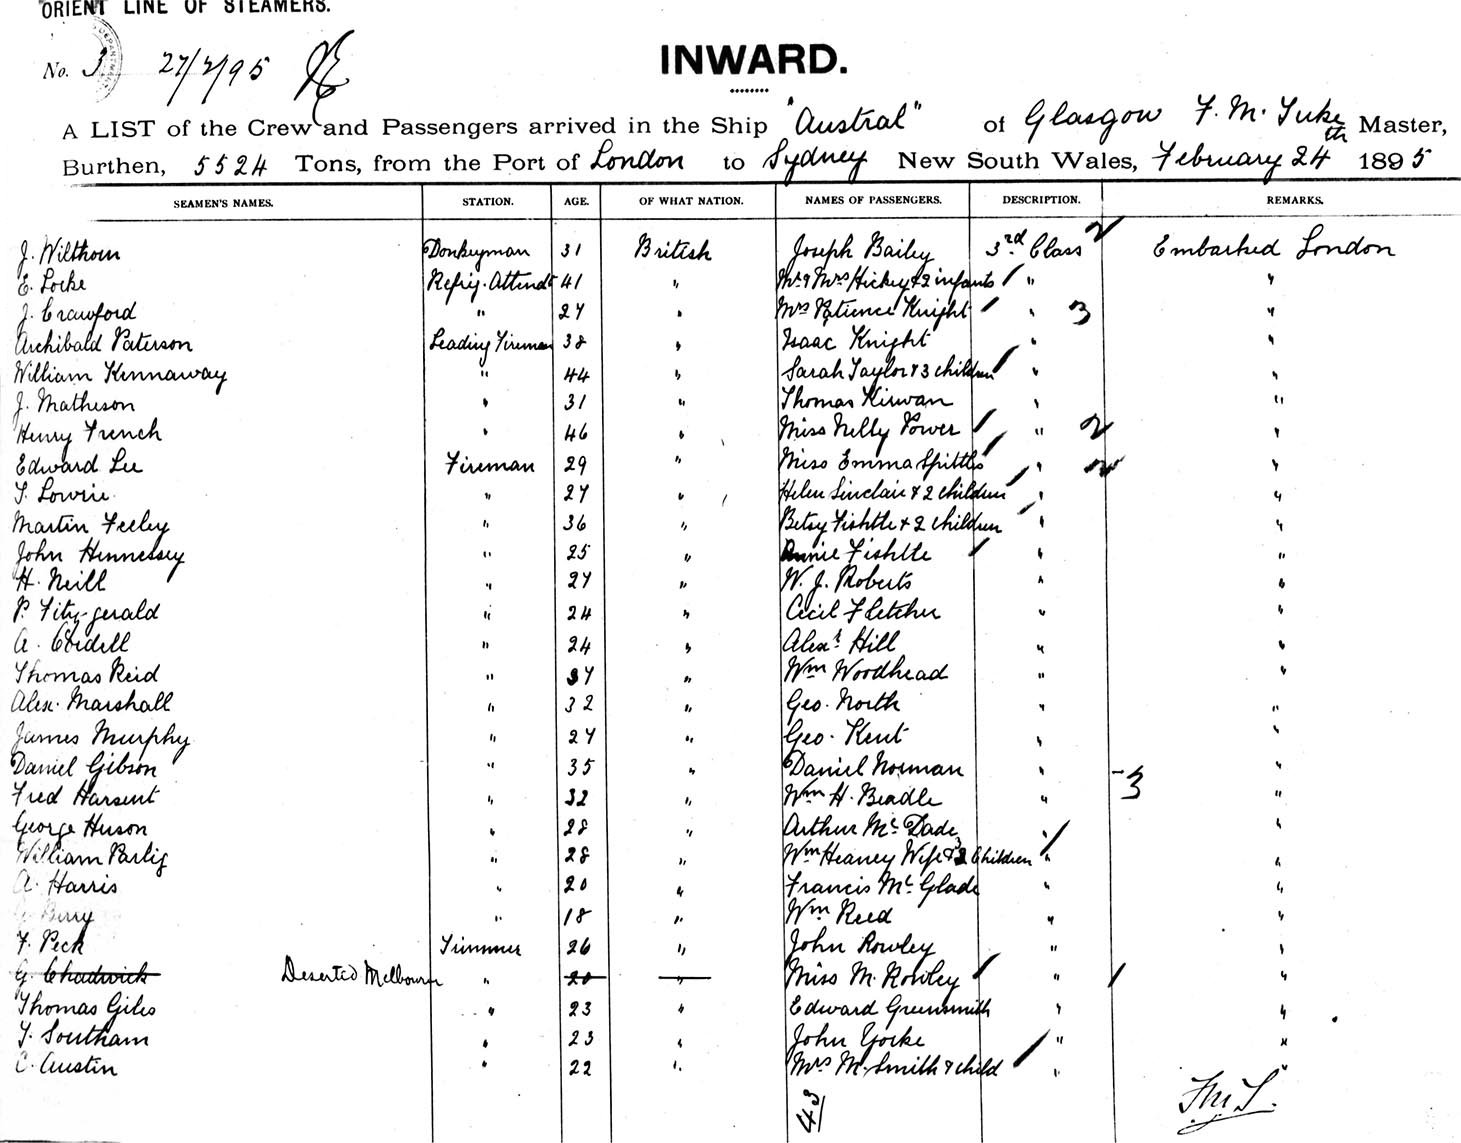 ORIENT LINE OF STEAMERS.
No. 3 27/2/95
INWARD.
A LIST of the Crew and Passengers arrived in the Ship "Austral" of Glasgow F. M. Tuke Master,
Burthen, 5524 Tons, from the Port of London to Sydney New South Wales, February 24th 1895
SEAMEN'S NAMES. STATION. AGE. OF WHAT NATION. NAMES OF PASSENGERS. DESCRIPTION. REMARKS.
J. Wilthorn Donkeyman 31 British Joseph Bailey 3rd Class 2 Embarked London
E. Locke Refrig. Attendt 41 " Mr & Mrs Hickey & 2 infants " "
J. Crawford " 27 " Mrs Patience Knight " 3 "
Archibald Paterson Leading Fireman 38 " Isaac Knight " "
William Kinnaway " 44 " Sarah Taylor & 3 children " "
J. Matheson " 31 " Thomas Kirwan " "
Henry French " 46 " Miss Nelly Power " 2 "
Edward Lee Fireman 29 " Miss Emma Spittles " "
T. Lowrie " 27 " Helen Sinclair & 2 children " "
Martin Feeley " 36 " Betsy Fishtte & 2 children " "
John Hennessey " 25 " Annie Fishtte " "
H. Neill " 27 " W. J. Roberts " "
P. Fitz-gerald " 24 " Cecil Fletcher " "
A. " 24 " Alexr Hill " "
Thomas Reid " 37 " Wm Woodhead " "
Alex. Marshall " 32 " Geo. North " "
James Murphy " 27 " Geo. Kent " "
Daniel Gibson " 35 " Daniel Norman " "
Fred Harsent " 32 " Wm H. Beadle " 3 "
George Huson " 28 " Arthur Mc Dade " "
William Parlig " 28 " Wm Heaney Wife & 3 Children " "
A. Harris " 20 " Francis Mc Glade " "
Berry " 18 " Wm Reed " "
F. Peck Trimmer 26 " John Rowley " "
G. Chadwick Deserted Melbourne " 20 " Miss M. Rowley " "
Thomas Giles " 23 " Edward Greensmith " "
T. Southam " 23 " John Yorke " "
C. Austin " 22 " Mrs M. Smith & child "
43